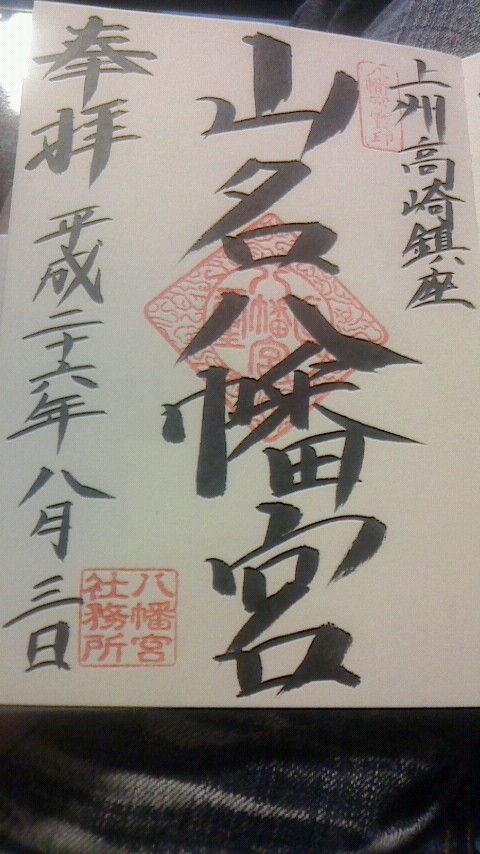 上州高崎鎮座
山名八幡宮
奉拝
平成二十六年八月三日
八幡宮
社務所